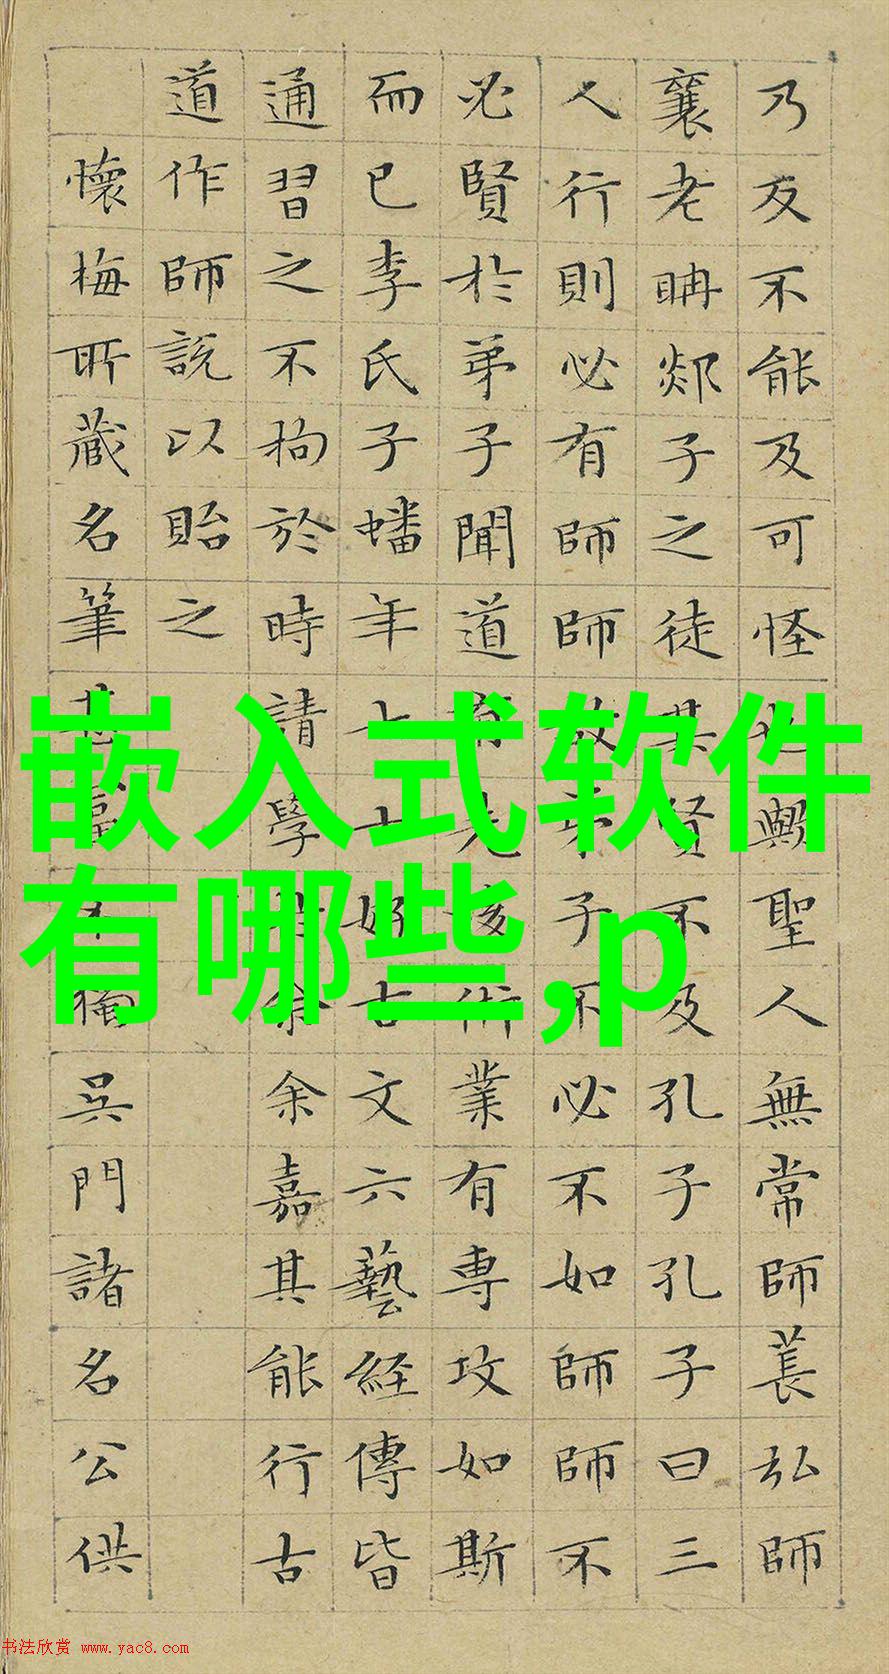 乃反不能及可怪也歟聖人無常師萇弘師
襄老聃郯子之徒其賢不及孔子孔子曰三
人行則必有師師故弟子不必不如師師不
必賢於弟子聞道有先後術業有専攻如斯
而已李氏子蟠年十七好古文六藝経傳皆
通習之不拘於時請學於余余嘉其能行古
道作師説以貽之
懷梅所藏名筆不獨吳門諸名公供
嵌入式软件
有哪些,p
书法欣赏 www.yac8.com